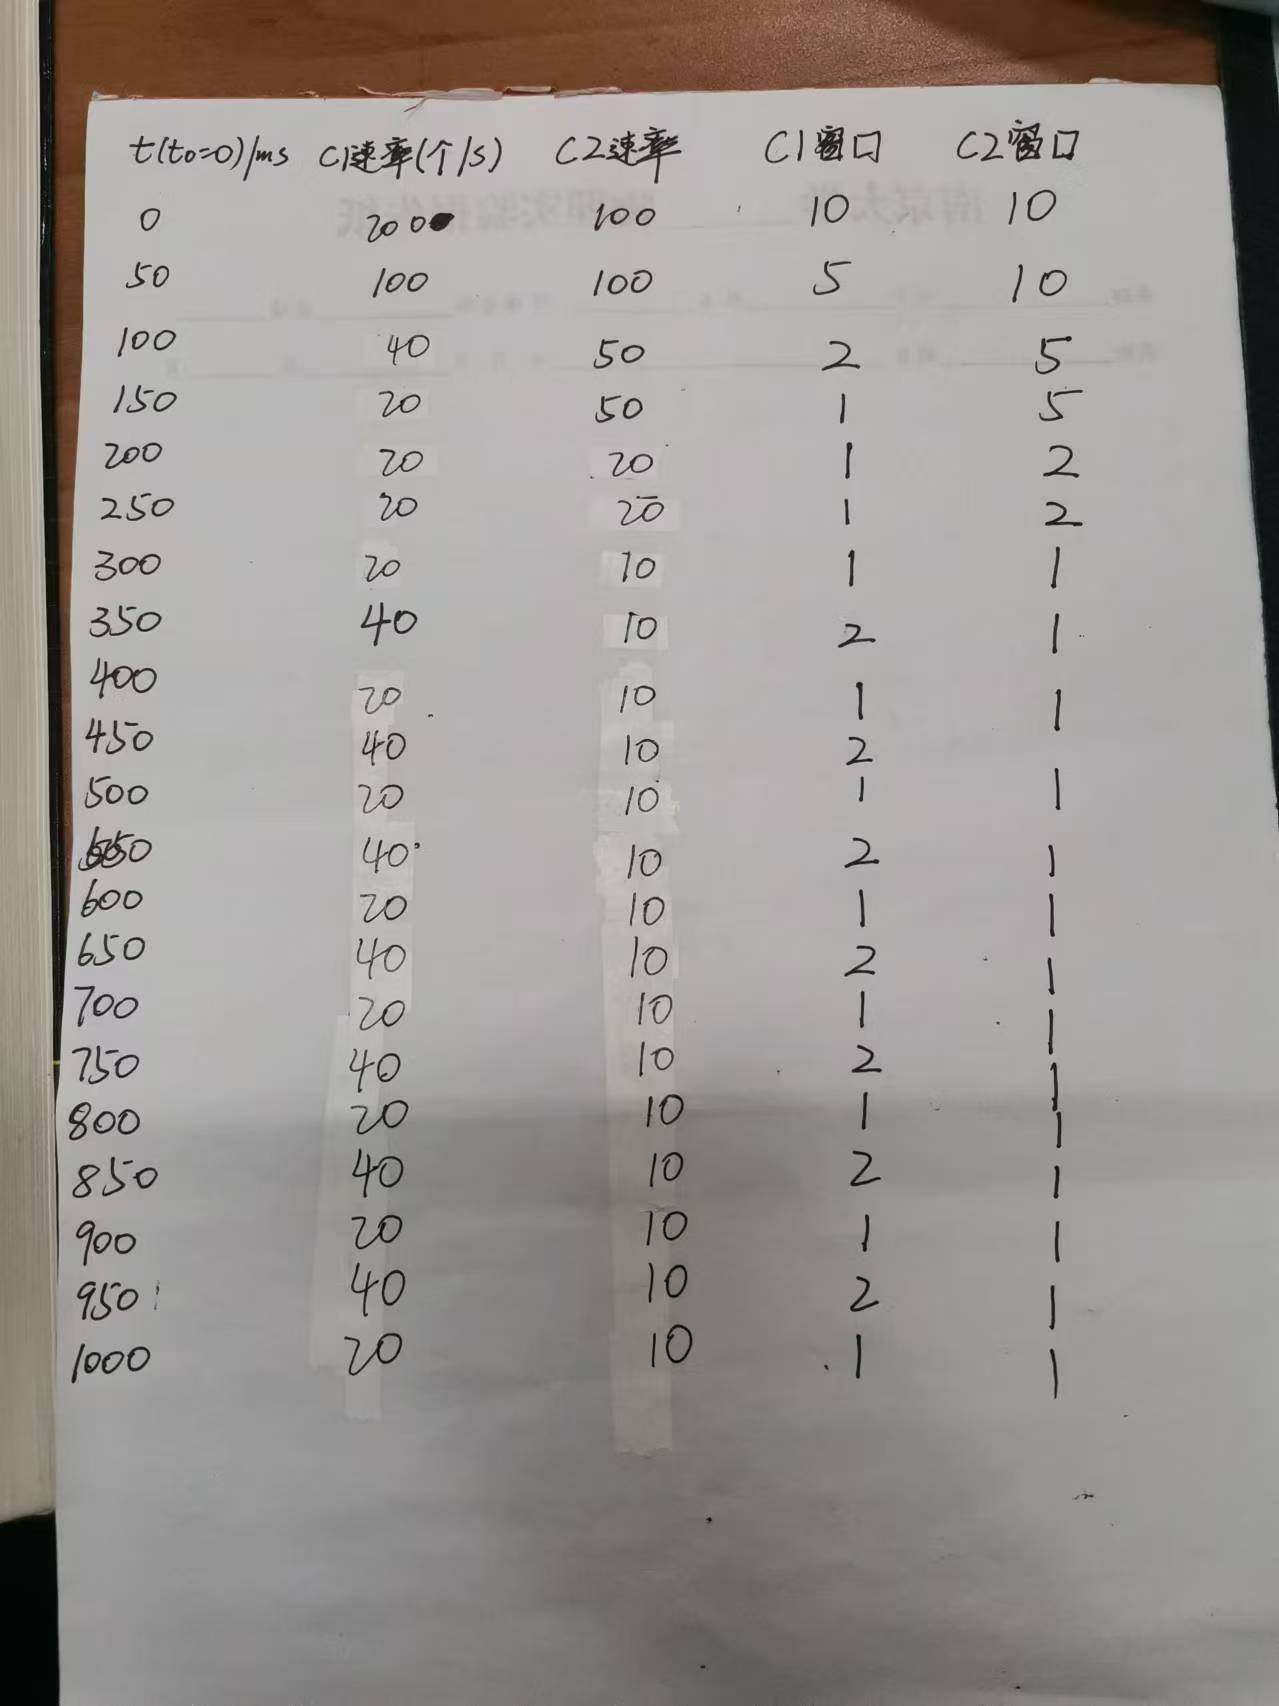 t(t0=0)/ms C1速率(个/s) C2速率 C1窗口 C2窗口
0 200 100 10 10
50 100 100 5 10
100 40 50 2 5
150 20 50 1 5
200 20 20 1 2
250 20 20 1 2
300 20 10 1 1
350 40 10 2 1
400 20 10 1 1
450 40 10 2
500 20 10 1 1
550 40 10 2 1
600 20 10 1 1
650 40 10 2 1
700 20 10 1 1
750 40 10 2 1
800 20 10 1 1
850 40 10 2 1
900 20 10 1 1
950 40 10 2 1
1000 20 10 1 1